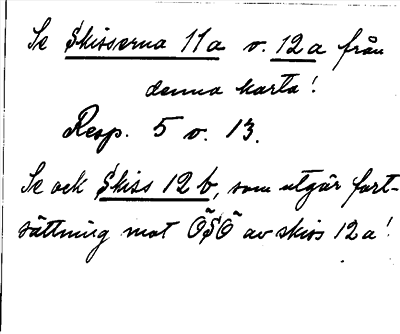 Se Skisserna 11a o. 12a från
denna karta!
Resp. 5 o. 13.
Se ock Skiss 12b, som utgår fort-
sättning mot ÖSÖ av skiss 12a!